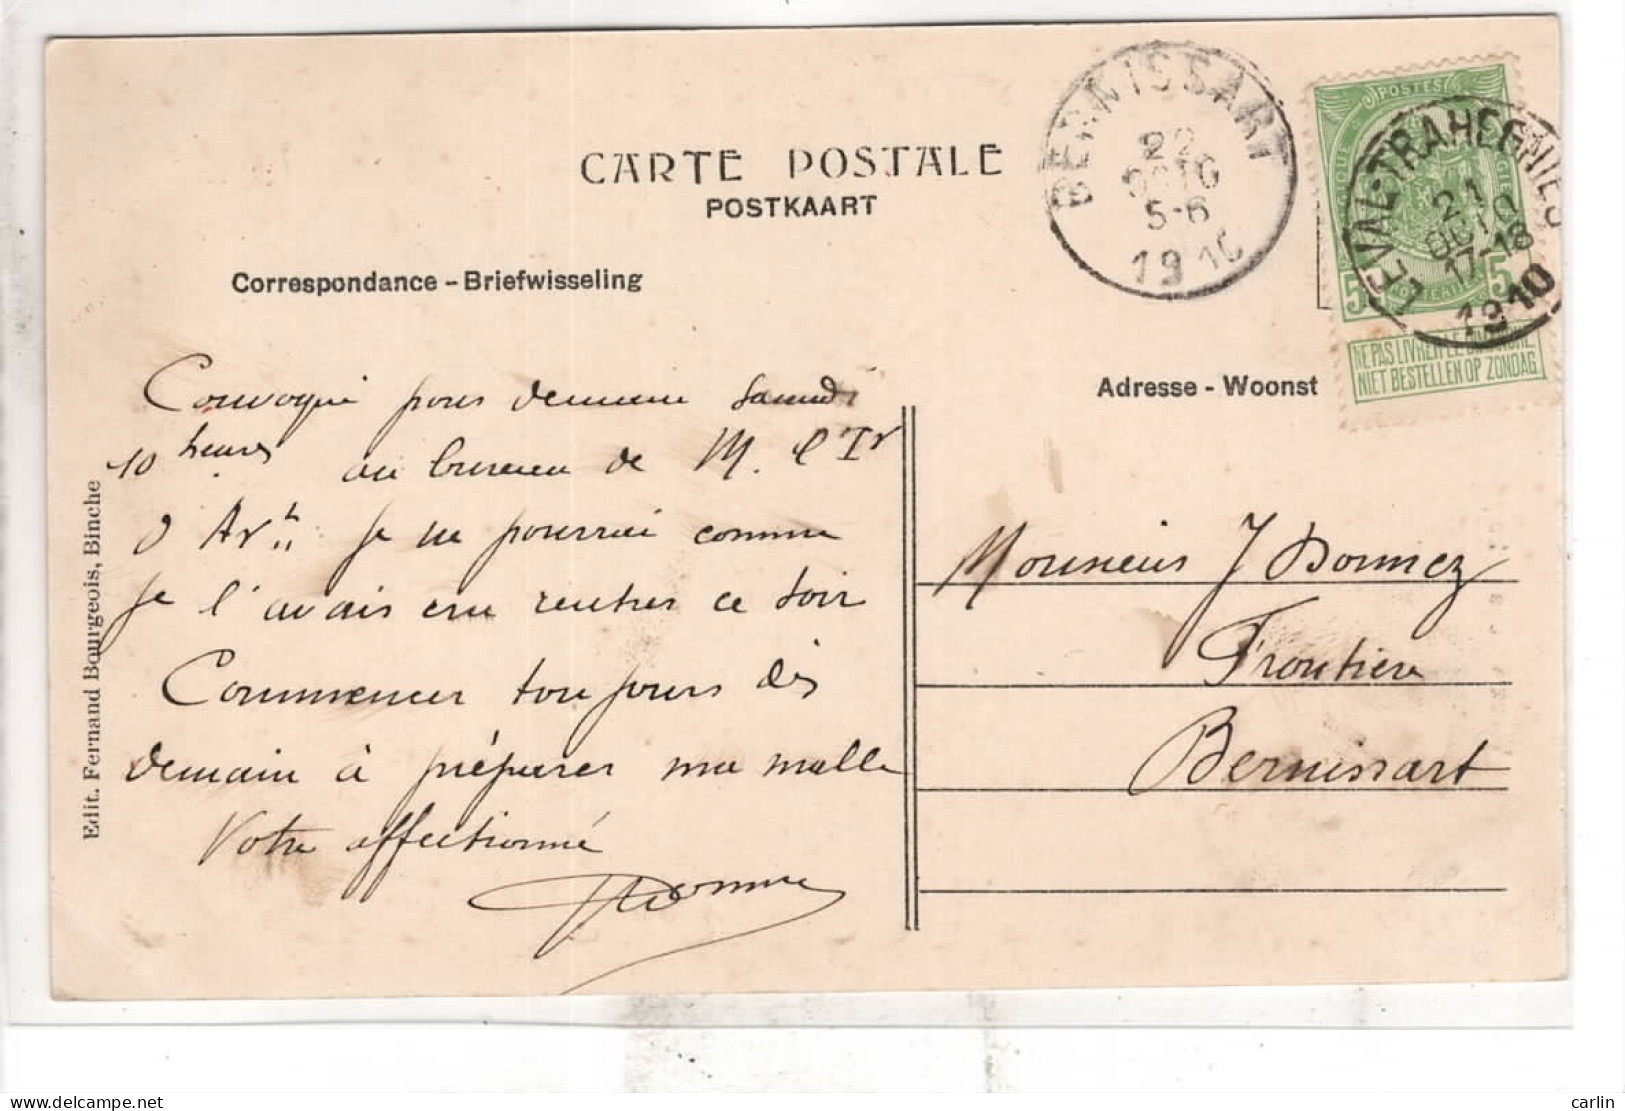 CARTE POSTALE
POSTKAART
Correspondance - Briefwisseling
Adresse - Woonst
BERNISSART
22
OCTO
5-6
1910
POSTES
5 5
LEVAL-TRAHEGNIES
21
OCTO
17-18
1910
NE PAS LIVRER LE DIMANCHE
NIET BESTELLEN OP ZONDAG
Convoqué pour demain samedi
10 heures au bureau de M. l'Ir
je ne pourrai comme
je l'avais cru rentrer ce soir
Commencer toujours dès
demain à préparer ma malle
Votre affectionné
Monsieur J Donnez
Frontière
Bernissart
Edit. Fernand Bourgeois, Binche
carlin